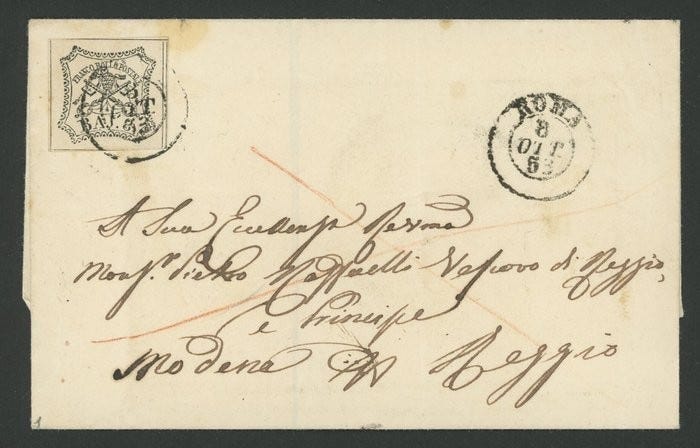 FRANCO BOLLO POSTALE
BAJ. 8
ROMA
8
OTT
53
A Sua Eccellenza Revma
Monsr. Pietro Raffaelli Vescovo di Reggio,
e Principe
Modena Reggio
1